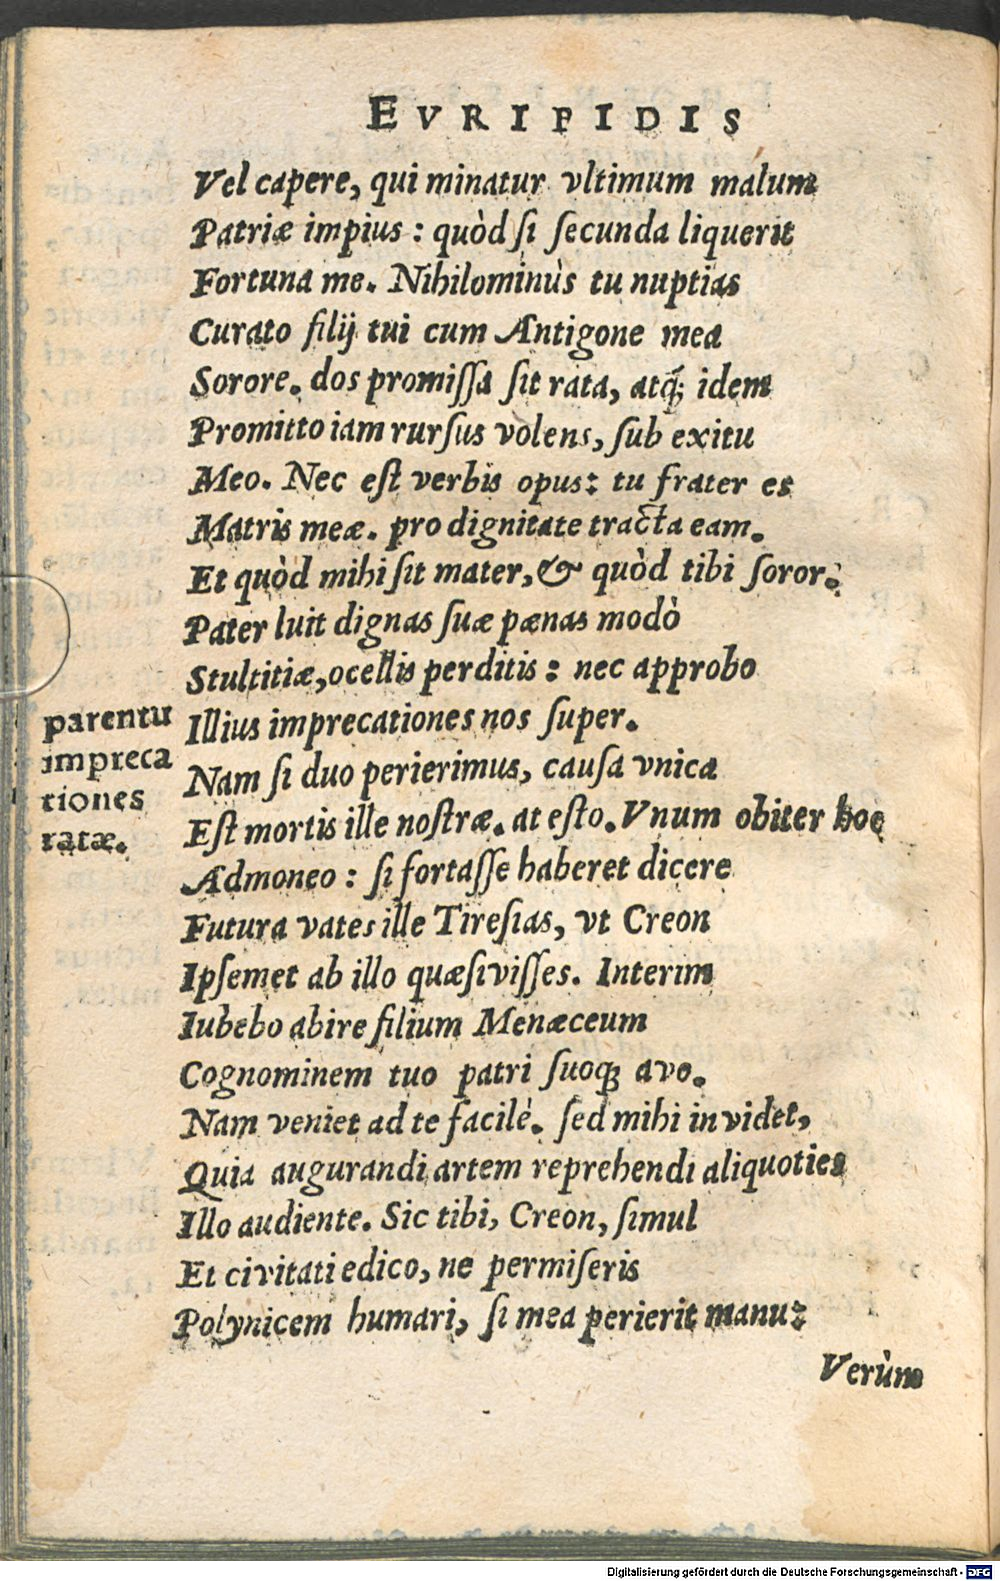 EVRIPIDIS
Vel capere, qui minatur vltimum malum
Patriæ impius : quòd ſi ſecunda liquerit
Fortuna me. Nihilominùs tu nuptias
Curato filij tui cum Antigone mea
Sorore. dos promiſſa ſit rata, atq́; idem
Promitto iam rurſus volens, ſub exitu
Meo. Nec eſt verbis opus: tu frater es
Matris meæ. pro dignitate tracta eam.
Et quòd mihi ſit mater, & quòd tibi ſoror.
Pater luit dignas ſuæ pænas modò
Stultitiæ, ocellis perditis : nec approbo
Illius imprecationes nos ſuper.
Nam ſi duo perierimus, cauſa vnica
Eſt mortis ille noſtræ. at eſto. Vnum obiter hoc
Admoneo : ſi fortaſſe haberet dicere
Futura vates ille Tireſias, vt Creon
Ipſemet ab illo quæſiviſſes. Interim
Iubebo abire filium Menæceum
Cognominem tuo patri ſuoq; avo.
Nam veniet ad te facilè. ſed mihi invidet,
Quia augurandi artem reprehendi aliquoties
Illo audiente. Sic tibi, Creon, ſimul
Et civitati edico, ne permiſeris
Polynicem humari, ſi mea perierit manu:
Verùm
parentu
impreca
tiones
ratæ.
Digitalisierung gefördert durch die Deutsche Forschungsgemeinschaft - DFG